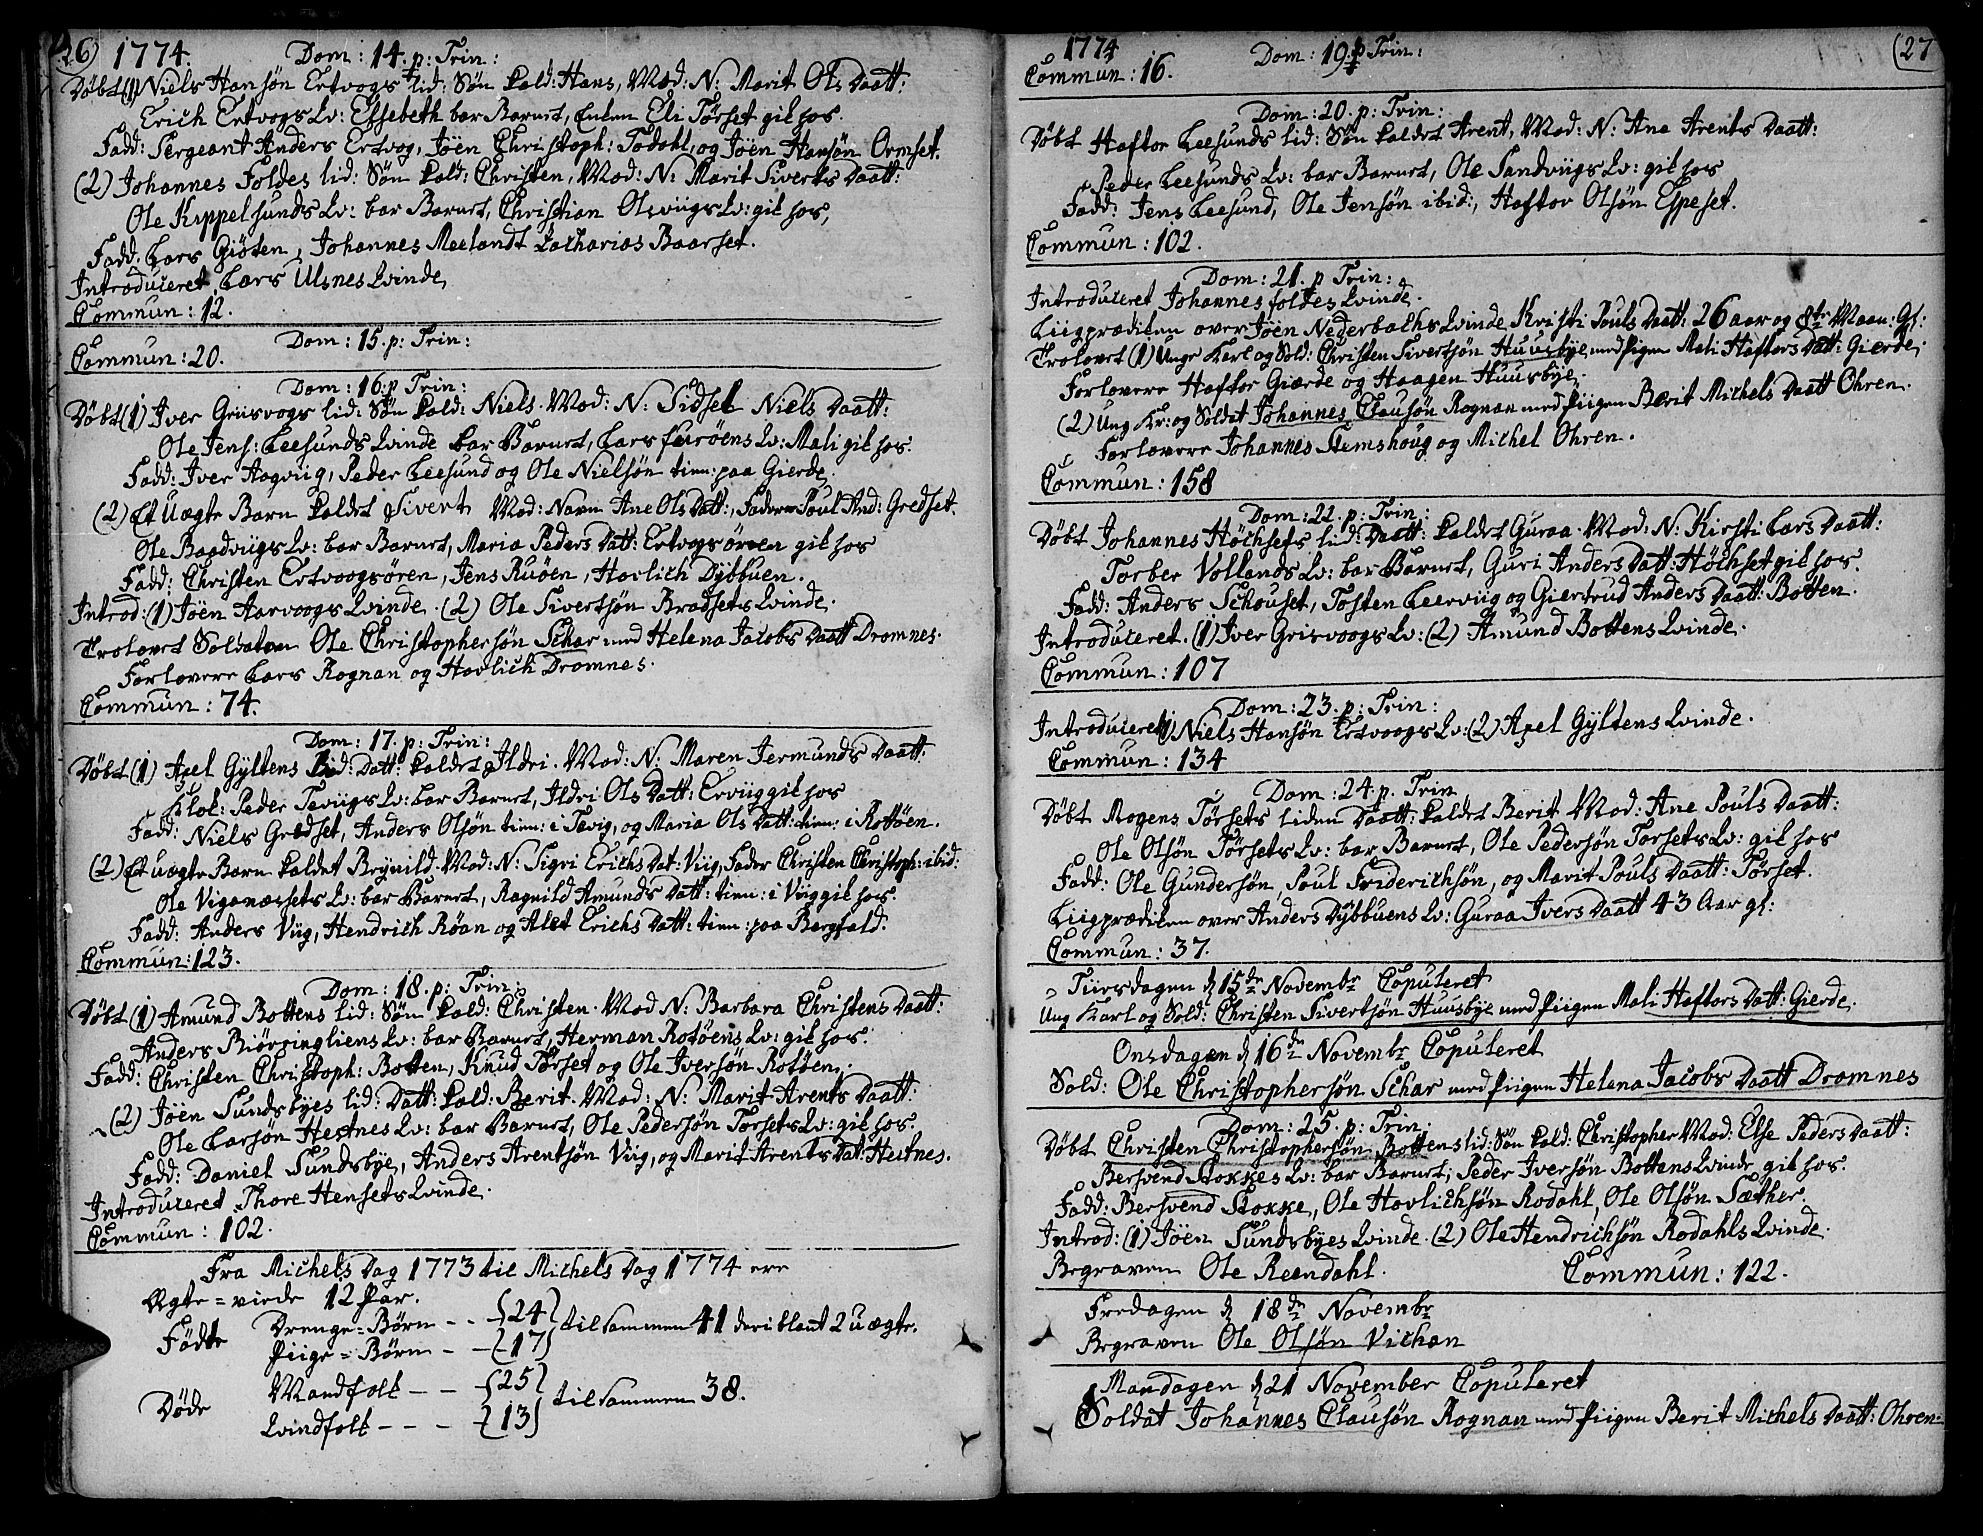 26) 1774. Dom: 14. p: Trin:
Døbt (1) Niels Hansøn Ertvogs lid: Søn kald: Hans, Mod: N: Marit Ols Daatt:
Erich Ertvogs Qv: Elssebeth bar Barnet, Enken Eli Tørset gik hos.
Fadd: Sergeant Anders Ertvog, Jøen Christoph: Todahl, og Jøen Hansøn Ormset.
(2) Johannes Foldes lid: Søn kald: Christen, Mod: N: Marit Siverts Daatt:
Ole Kippelsunds Qv: bar Barnet, Christian Olsviigs Qv: gik hos,
Fadd. Lars Giöten, Johannes Meelandt Zacharias Baarset.
Introduceret Lars Ulsnes Qvinde,
Commun: 12.
Dom: 15. p: Trin:
Commun: 20.
Dom: 16. p Trin:
Døbt (1) Iver Grisvogs lid: Søn kald: Niels. Mod: N: Sidsel Niels Daatt:
Ole Jens: Leesunds Qvinde bar Barnet, Lars furöens Qv: Mali gik hos.
Fadd: Iver Aagviig, Peder Leesund og Ole Nielsøn tien: paa Gierde,
(2) Et Uægte Barn kaldet Sivert Mod: Navn Ane Ols Datt:, Faderen Poul And: Gredset.
Ole Baadviigs Qv: bar Barnet, Maria Peders Datt: Ertvogsören gik hos
Fadd: Christen Ertvoogsören, Jens Ruöen, Havlich Dybbuen.
Introd: (1) Jöen Aarvoogs Qvinde. (2) Ole Sivertsön Bradsets Qvinde.
Trolovet Soldaten Ole Christophersön Schar med Helena Jacobs Daatt Dromnes.
Forlovere Lars Rognan og Havlich Dromnes.
Commun: 74.
Dom: 17. p: Trin:
Døbt (1) Axel Gyltens Lid: Datt: kaldet Ildri. Mod: N: Maren Jermunds Daatt:
Klok: Peder Teviigs Qv: bar Barnet, Ildri Ols Datt: Erviig gik hos
Fadd: Niels Gredset, Anders Olsøn tien: i Tevig, og Maria Ols Datt: tien: i Rottöen.
(2) Et uægte Barn kaldet Brynild. Mod: N: Sigri Erichs Dat: Viig, Fader Christen Christoph: ibid:
Ole Viganæssets Qv: bar Barnet, Ragnild Amunds Datt: tien: i Viig gik hos.
Fadd: Anders Viig, Hendrich Röan og Alet Erichs Datt: tien: paa Bergfald.
Commun: 123.
Dom: 18. p: Trin:
Døbt (1) Amund Bottens lid: Søn kald: Christen. Mod N: Barbara Christens Daatt:
Anders Biörringliens Qv: bar Barnet, Herman Rotöens Qv: gik hos.
Fadd: Christen Christoph: Botten, Knud Tørset og Ole Iversøn Rotöen,
(2) Jöen Sundsbyes lid: Datt: kald: Berit. Mod: N: Marit Arents Daatt:
Ole Larsøn Hestnes Qv: bar Barnet, Ole Pedersøn Torsets Qv: gik hos.
Fadd: Daniel Sundsbye, Anders Arentsøn Viig, og Marit Arents Dat: Hestnes.
Introduceret Thore Hensets Qvinde.
Commun: 102.
Fra Michels Dag 1773 til Michels Dag 1774 ere
Ægte=viede 12 Par.
Fødte Drenge=Børn - - {24}
Piige=Børn - - {17} til sammen 41 deriblant 2 uægte.
Døde Mandfolk - - {25}
Qvindfolk - - - {13} til sammen 38.
1774 Dom: 19. p Trin: (27
Commun: 16.
Dom: 20. p: Trin:
Døbt Haftor Leesunds lid: Søn kaldet Arent, Mod: N: Ane Arents Daatt:
Peder Leesunds Qv: bar Barnet, Ole Sandviigs Qv: gik hos
Fadd: Jens Leesund, Ole Jensøn ibid:, Haftor Olsøn Espeset.
Commun: 102.
Dom: 21. p Trin:
Introduceret Johannes foldes Qvinde.
Liigprædiken over Jöen Nederbachs Qvinde Kristi Pouls Daatt: 26 aar og 8te Maan: Gl:
Trolovet (1) Unge Karl og Sold: Christen Sivertsøn Huusbye med Pigen Mali Haftors Datt: Gierde,
Forlovere Haftor Gierde og Haagen Huusbye.
(2) Ung Kr: og Soldat Johannes Clausøn Rognan med Piigen Berit Michels Daatt Ohren.
Forlovere Johannes Stemshoug og Michel Ohren.
Commun: 158
Dom: 22. p: Trin:
Døbt Johannes Höchsets lid: Daatt: kaldet Guraa. Mod: N: Kirsti Lars Daatt:
Torber Vollands Qv: bar Barnet, Guri Anders Datt: Höchset gik hos.
Fadd: Anders Schouset, Tosten Leerviig og Giertrud Anders Daatt: Botten.
Introduceret. (1) Iver Grisvoogs Qv: (2) Amund Bottens Qvinde.
Commun: 107
Dom: 23. p: Trin:
Introduceret (1) Niels Hansøn Ertvoogs Qv: (2) Axel Gyltens Qvinde.
Commun: 134
Dom: 24. p. Trin
Døbt Mogens Tørsets liden Daatt: kaldet Berit Mod: Ane Pouls Daatt:
Ole Olsøn Tørsets Qv: bar Barnet, Ole Pedersøn Torsets Qv: gik hos
Fadd: Ole Gundersøn, Poul Friderichsøn, og Marit Pouls Daatt: Tørset.
Liigprædiken over Anders Dybbuens Qv: Guraa Ivers Daatt 43 Aar gl:
Commun: 37.
Tiirsdagen d 15de Novembr Copuleret
Ung Karl og Sold: Christen Sivertsøn Huusbye med Piigen Mali Haftors Datt: Gierde.
Onsdagen d 16de Novembr Copuleret
Sold: Ole Christophersøn Schar med Piigen Helena Jacobs Daatt Dromnes
Dom: 25. p: Trin:
Døbt Christen Christophersøn Bottens lid: Søn kald: Christopher Mod: Else Peders Daatt:
Bersvend Stokkes Qv: bar Barnet, Peder Iversøn Bottens Qvinde gik hos.
Fadd: Bersvend Stokke, Ole Havlichsøn Rodahl, Ole Olsøn Sæther.
Introd: (1) Jöen Sundsbyes Qvinde. (2) Ole Hendrichsøn Rodahls Qvinde.
Begraven Ole Reendahl. Commun: 122.
Fredagen d 18de Novembr
Begraven Ole Olsøn Vichan
Mandagen d 21 November Copuleret
Soldat Johannes Clausøn Rognan med Piigen Berit Michels Daatt: Ohren.